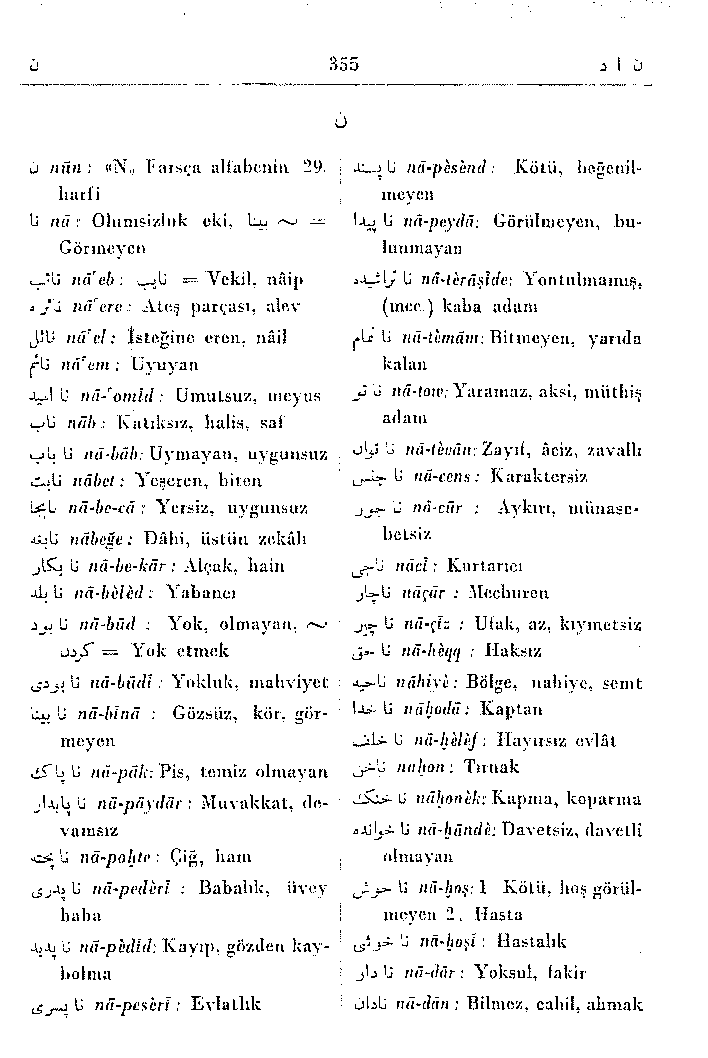 ن 355 ن ا د
ن
ن nūn : «N„ Farsça alfabenin 29.
harfi
نا nā : Olumsizluk eki, نا بینا ~ =
Görmeyen
نائب nā'eb : نایب = Vekil, nâip
نائره nā'ere : Ateş parçası, alev
نائل nā'el : İsteğine eren, nâil
نائم nā'em : Uyuyan
نا امید nā-'omīd : Umutsuz, meyus
ناب nāb : Katıksız, halis, saf
نا باب nā-bāb: Uymayan, uygunsuz
نابت nābet : Yeşeren, biten
نابجا nā-be-cā : Yersiz, uygunsuz
نابغه nābeğe : Dâhi, üstün zekâlı
نا بکار nā-be-kār : Alçak, hain
نا بلد nā-bèlèd : Yabancı
نا بود nā-būd : Yok, olmayan, ~
کردن = Yok etmek
نا بودی nā-būdī : Yokluk, mahviyet
نا بینا nā-bīnā : Gözsüz, kör, gör-
meyen
نا پاک nā-pāk: Pis, temiz olmayan
نا پایدار nā-pāydār : Muvakkat, de-
vamsız
نا پخته nā-pohte : Çiğ, ham
نا پدری nā-pederī : Babalık, üvey
baba
نا پدید nā-pèdīd: Kayıp, gözden kay-
bolma
نا پسری nā-peserī : Evlatlık
نا پسند nā-pèsènd : Kötü, beğenil-
meyen
نا پیدا nā-peydā: Görülmeyen, bu-
lunmayan
نا تراشیده nā-tèrāşīde: Yontulmamış,
(mec.) kaba adam
نا تمام nā-tèmām: Bitmeyen, yarıda
kalan
نا تو nā-tow: Yaramaz, aksi, müthiş
adam
نا توان nā-tèvān: Zayıf, âciz, zavallı
نا جنس nā-cens : Karaktersiz
نا جور nā-cūr : Aykırı, münase-
betsiz
ناجی nācī : Kurtarıcı
ناچار nāçār : Mecburen
نا چیز nā-çīz : Ufak, az, kıymetsiz
نا حق nā-hèqq : Haksız
ناحیه nāhiyè : Bölge, nahiye, semt
نا خدا nāḫodā : Kaptan
نا خلف nā-ḫèlèf : Hayırsız evlât
ناخن nāḫon : Tırnak
ناخنک nāḫonèk: Kapma, koparma
نا خوانده nā-ḫāndè: Davetsiz, davetli
olmayan
نا خوش nā-ḫoş: 1 Kötü, hoş görül-
meyen 2. Hasta
نا خوشی nā-ḫoşī : Hastalık
نا دار nā-dār : Yoksul, fakir
نادان nā-dān : Bilmez, cahil, ahmak